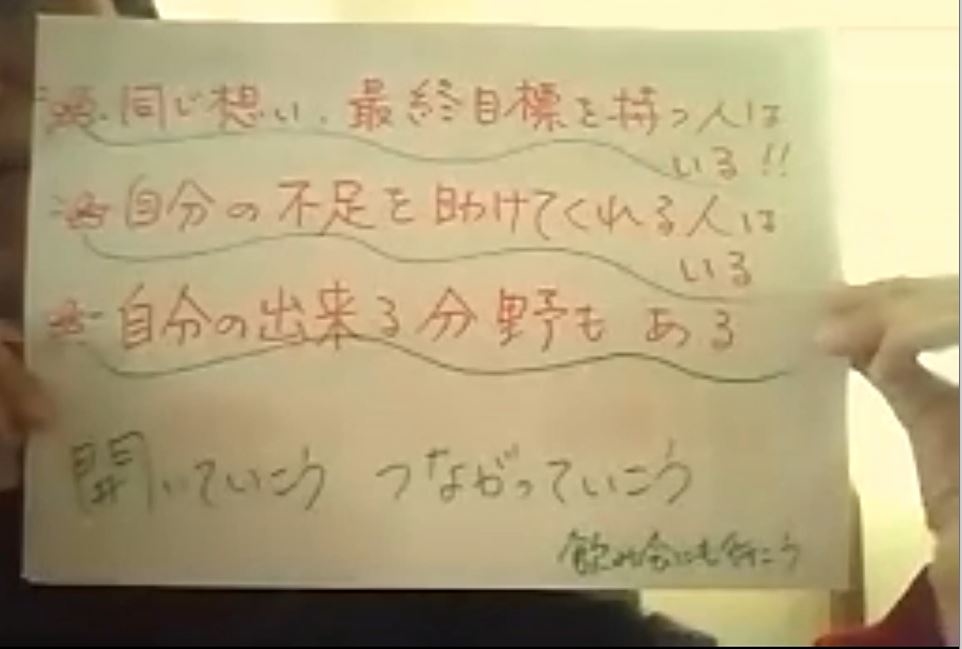 同じ想い、最終目標を持つ人は
いる!!
自分の不足を助けてくれる人は
いる
自分の出来る分野もある
開いていこう つながっていこう
飲み会にも行こう